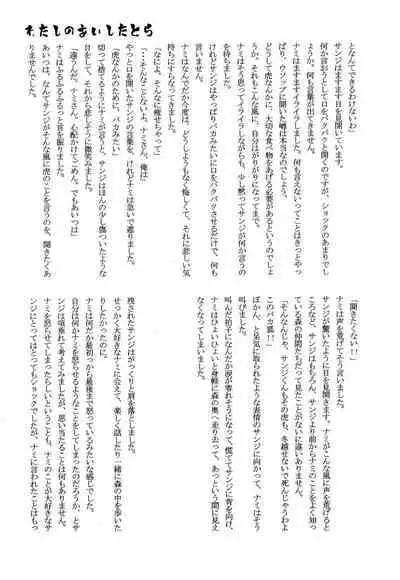 わたしのあいしたとら
となんてできるわけないわ」
サンジはますます目を見開いています。
何か言おうとして口をパクパクと開くのですが、ショックのあまりでしょうか。何も言葉が出てきません。
ナミは思いました。何も言えないってことはきっとやっぱり、ウソップに聞いた噂は本当なのでしょう。
どうして虎なんかに、大切な食べ物をあげる必要があるというのでしょうか。それもこんな風に、自分はがりがりになってまで。
ナミはそう思ってイライラしながらも、少し黙ってサンジが何か言うのを待ちました。
けれどサンジはやっぱりバカみたいに口をパクパクさせるだけで、何も言いません。
ナミはなんだか今度は、どうしようもなく悔しくて、それに悲しい気持ちにすらなってきました。
「なによ、そんなに痩せちゃって」
「・・そんなことないよ、ナミさん、俺は」
やっと口を開いたサンジの言葉を、けれどナミは急いで遮りました。
「虎なんかのために、バカみたい」
切って捨てるようにナミが言うと、サンジはほんの少し傷ついたような目をして、それから悲しそうに微笑みました。
「違うんだ、ナミさん。心配かけてごめん。でもあいつは」
ナミはふるふるふるっと首を振りました。
あいつは、なんてサンジがそんな風に虎のことを言うのを、聞きたくありませんでした。
「聞きたくない！！」
ナミは声を荒げてそう言いました。
サンジが驚いたように目を見開きます。ナミがこんな風に声を荒げるところなど、サンジはもちろん、サンジより前からナミのことをよく知っている森の仲間たちだって見たことがないに違いありません。
「そんなんじゃ、サンジくんもその虎も、冬越せないで死んじゃうわよこのバカ狐！！」
ぽかん、と呆気に取られたような表情のサンジに向かって、ナミはそう叫びました。
叫んだ拍子になんだか涙が零れそうになって、慌ててサンジに背を向け、ナミはひょいひょいと身軽に森の奥へ走り去って、あっという間に見えなくなってしまいました。
残されたサンジはがっくりと肩を落としました。
せっかく大好きなナミに会えて、楽しく話したり一緒に森の中を歩いたりしたかったのに。
ナミは何だか最初っから最後まで怒っているみたいな感じでした。
自分は何かナミを怒らせるようなことをしてしまったのだろうか、とサンジは項垂れて考えてみましたが、思い当たることは何もありません。
ナミを怒らせてしまったらしいということも、ナミのことが大好きなサンジにとってはとってもショックでしたが、ナミに言われたことはもっ